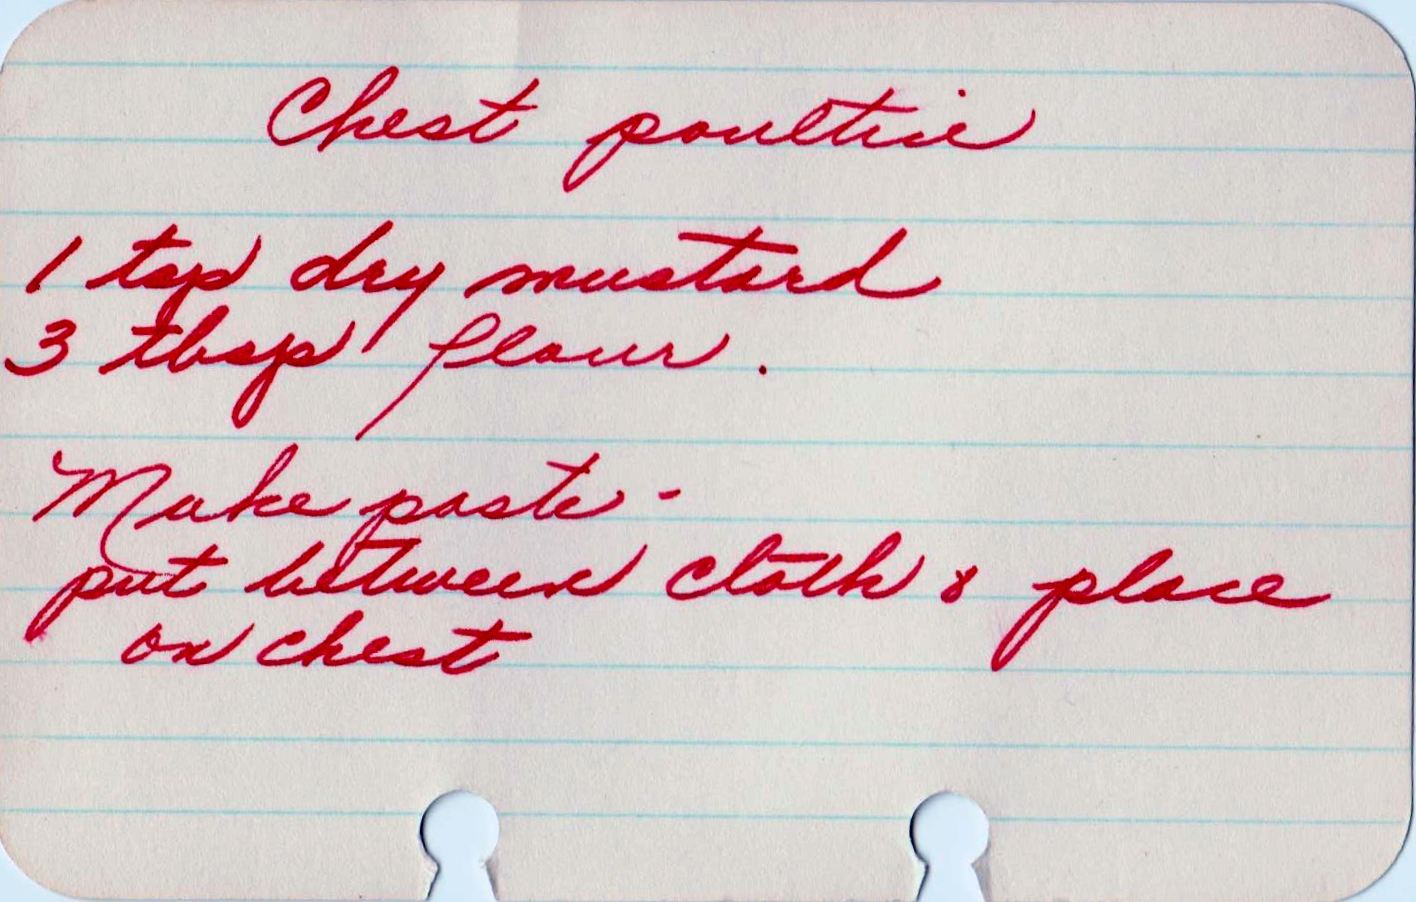 Chest poultice
1 tsp dry mustard
3 tbsp flour.
Make paste -
put between cloth & place
on chest